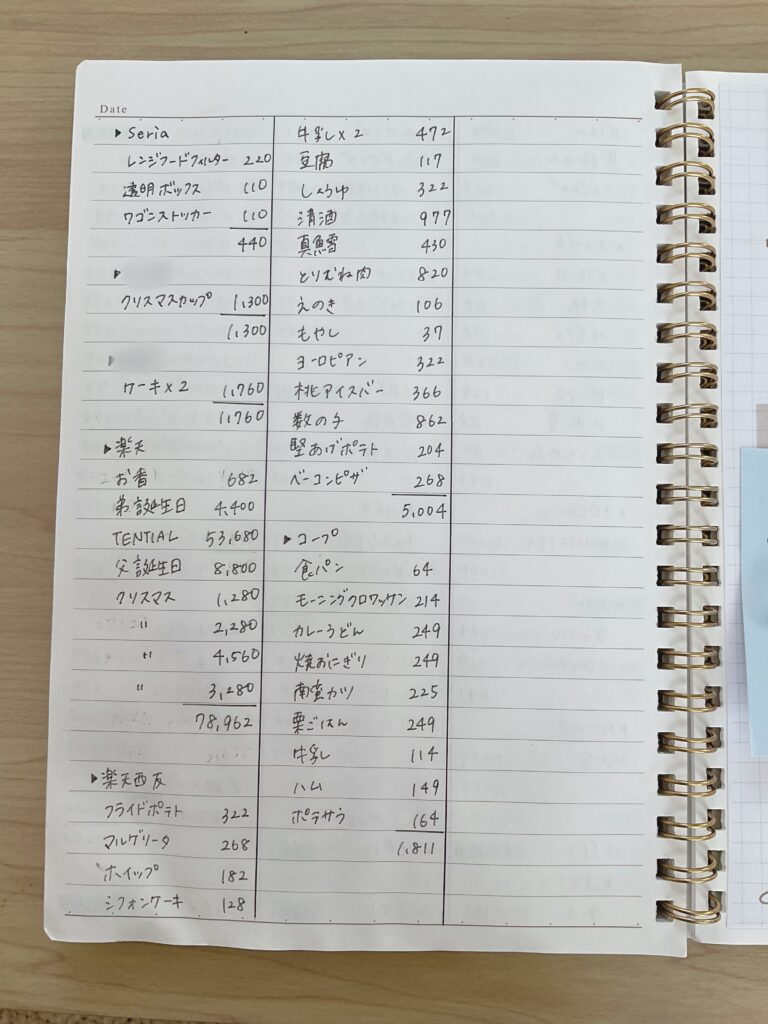 Date
▶ Seria
レンジフードフィルター 220
透明ボックス 110
ワゴンストッカー 110
440
▶
クリスマスカップ 1,300
1,300
▶
ケーキ×2 1,760
1,760
▶ 楽天
お香 682
弟誕生日 4,400
TENTIAL 53,680
父誕生日 8,800
クリスマス 1,280
〃 2,280
〃 4,560
〃 3,280
78,962
▶ 楽天西友
フライドポテト 322
マルゲリータ 268
ホイップ 182
シフォンケーキ 128
牛乳×2 472
豆腐 117
しょうゆ 322
清酒 977
真鱈 430
とりむね肉 820
えのき 106
もやし 37
ヨーロピアン 322
桃アイスバー 366
数の子 862
堅あげポテト 204
ベーコンピザ 268
5,004
▶ コープ
食パン 64
モーニングクロワッサン 214
カレーうどん 249
焼おにぎり 249
南蛮カツ 225
栗ごはん 249
牛乳 114
ハム 149
ポテサラ 164
1,811